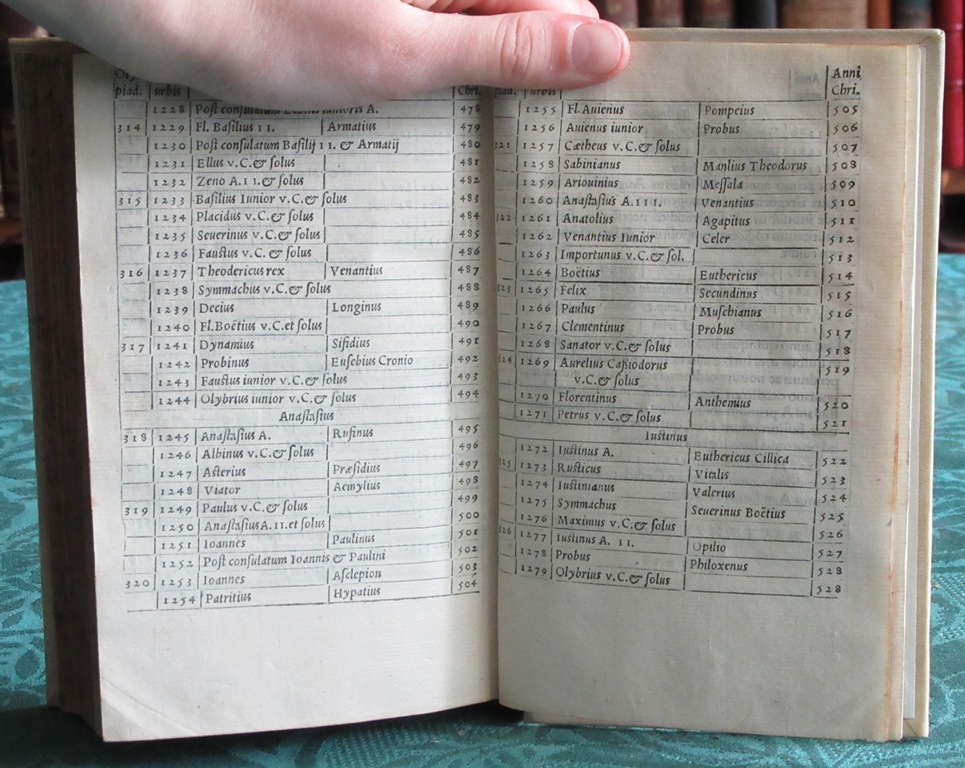 piad. urbis Chri.
1228 Post consulatum iunioris A. 478
314 1229 Fl. Basilius II. Armatius 479
1230 Post consulatum Basilij II. & Armatij 480
1231 Ellus v.C.& solus 481
1232 Zeno A.II.& solus 482
315 1233 Basilius Iunior v.C.& solus 483
1234 Placidus v.C.& solus 484
1235 Seuerinus v.C.& solus 485
1236 Faustus v.C.& solus 486
316 1237 Theodericus rex Venantius 487
1238 Symmachus v.C.& solus 488
1239 Decius Longinus 489
1240 Fl.Boëtius v.C.et solus 490
317 1241 Dynamius Sifidius 491
1242 Probinus Eusebius Cronio 492
1243 Faustus iunior v.C.& solus 493
1244 Olybrius iunior v.C.& solus 494
Anastasius
318 1245 Anastasius A. Rufinus 495
1246 Albinus v.C.& solus 496
1247 Asterius Præsidius 497
1248 Viator Aemylius 498
319 1249 Paulus v.C.& solus 499
1250 Anastasius A.II.et solus 500
1251 Ioannes Paulinus 501
1252 Post consulatum Ioannis & Paulini 502
320 1253 Ioannes Asclepion 503
1254 Patritius Hypatius 504
Anni
piad. urbis Chri.
1255 Fl.Auienus Pompeius 505
1256 Auienus iunior Probus 506
321 1257 Cætheus v.C.& solus 507
1258 Sabinianus Manlius Theodorus 508
1259 Ariouinius Messala 509
1260 Anastasius A.III. Venantius 510
322 1261 Anatolius Agapitus 511
1262 Venantius Iunior Celer 512
1263 Importunus v.C.& sol. 513
1264 Boëtius Euthericus 514
323 1265 Felix Secundinus 515
1266 Paulus Muschianus 516
1267 Clementinus Probus 517
1268 Sanator v.C.& solus 518
324 1269 Aurelius Caßiodorus 519
v.C.& solus
1270 Florentinus Anthemius 520
1271 Petrus v.C.& solus 521
Iustinus
1272 Iustinus A. Euthericus Cillica 522
325 1273 Rusticus Vitalis 523
1274 Iustinianus Valerius 524
1275 Symmachus Seuerinus Boëtius 525
1276 Maximus v.C.& solus 526
326 1277 Iustinus A. II. Opilio 527
1278 Probus Philoxenus 528
1279 Olybrius v.C.& solus 528